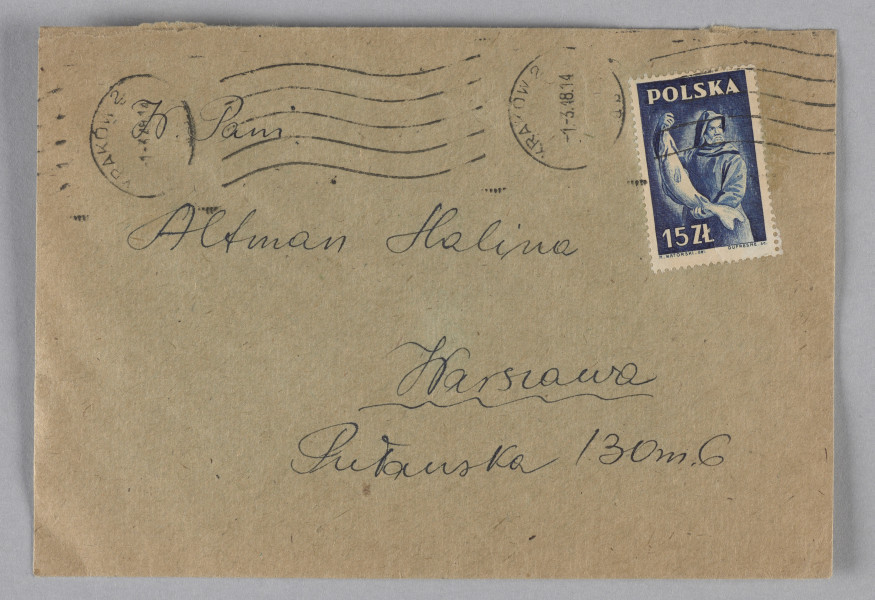 KRAKÓW 2
-1-3.48.14
KRAKÓW 2
-1-3.48.14
POLSKA
15 ZŁ
W. Pani
Altman Halina
Warszawa
Puławska 130 m. 6